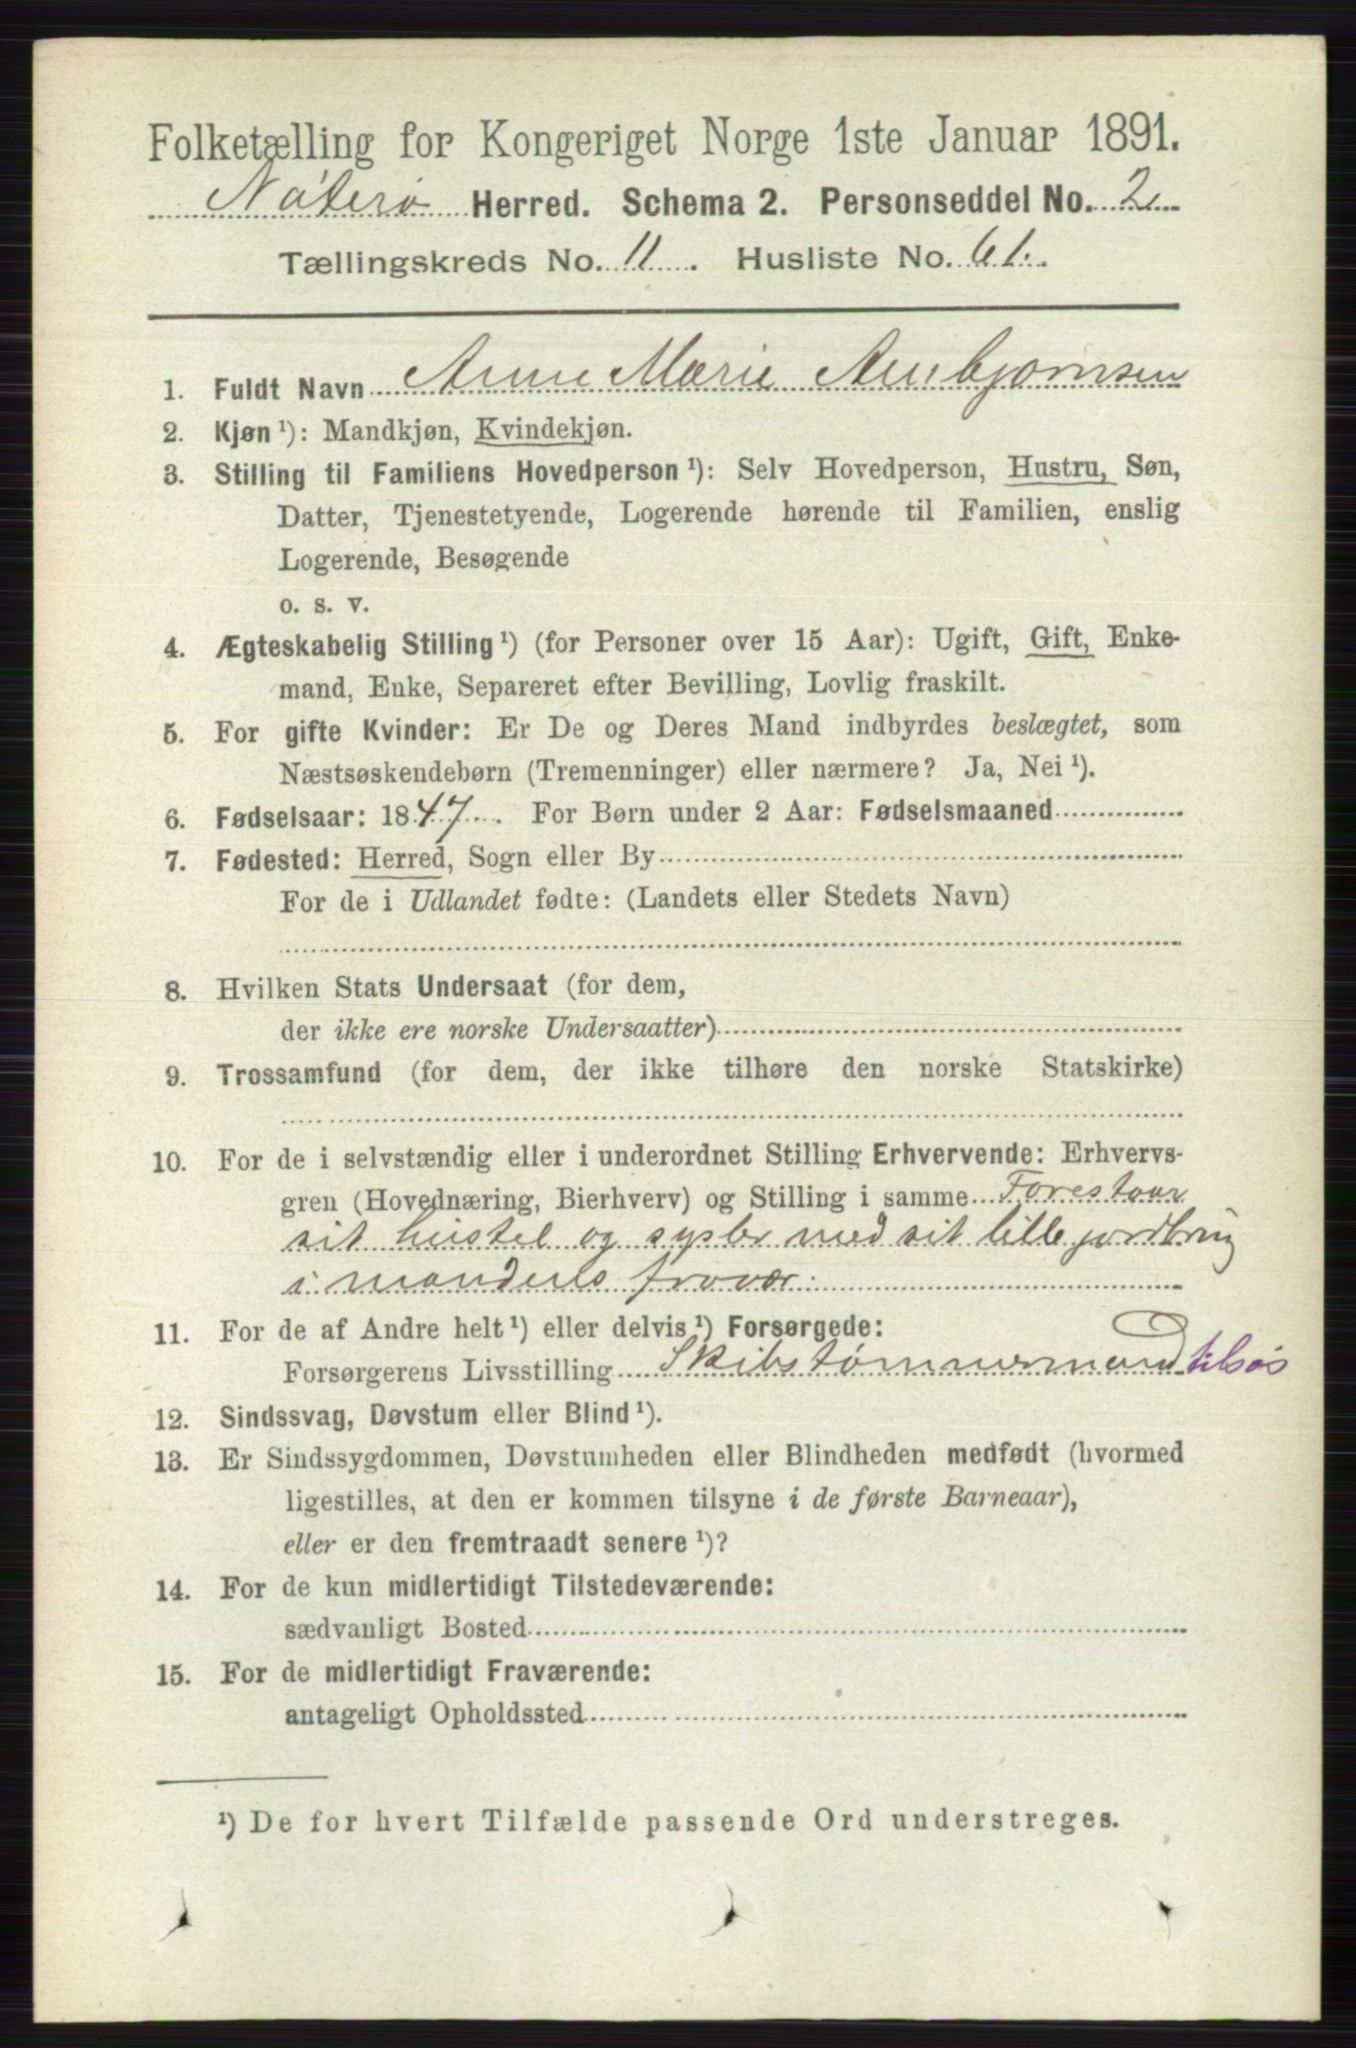 Folketælling for Kongeriget Norge 1ste Januar 1891.
Nøterø Herred. Schema 2. Personseddel No. 2.
Tællingskreds No. 11. Husliste No. 61.
1. Fuldt Navn Anne Marie Arnbjørnsen
2. Kjøn ¹): Mandkjøn, Kvindekjøn.
3. Stilling til Familiens Hovedperson ¹): Selv Hovedperson, Hustru, Søn,
Datter, Tjenestetyende, Logerende hørende til Familien, enslig
Logerende, Besøgende
o. s. v.
4. Ægteskabelig Stilling ¹) (for Personer over 15 Aar): Ugift, Gift, Enke-
mand, Enke, Separeret efter Bevilling, Lovlig fraskilt.
5. For gifte Kvinder: Er De og Deres Mand indbyrdes beslægtet, som
Næstsøskendebørn (Tremenninger) eller nærmere? Ja, Nei ¹).
6. Fødselsaar: 1847. For Børn under 2 Aar: Fødselsmaaned
7. Fødested: Herred, Sogn eller By
For de i Udlandet fødte: (Landets eller Stedets Navn)
8. Hvilken Stats Undersaat (for dem,
der ikke ere norske Undersaatter)
9. Trossamfund (for dem, der ikke tilhøre den norske Statskirke)
10. For de i selvstændig eller i underordnet Stilling Erhvervende: Erhvervs-
gren (Hovednæring, Bierhverv) og Stilling i samme Forestaar
sit hustel og sysler med sit lille jordbrug
i mandens fravær.
11. For de af Andre helt ¹) eller delvis ¹) Forsørgede:
Forsørgerens Livsstilling Skibstømmermand tilsøs
12. Sindssvag, Døvstum eller Blind ¹).
13. Er Sindssygdommen, Døvstumheden eller Blindheden medfødt (hvormed
ligestilles, at den er kommen tilsyne i de første Barneaar),
eller er den fremtraadt senere ¹)?
14. For de kun midlertidigt Tilstedeværende:
sædvanligt Bosted
15. For de midlertidigt Fraværende:
antageligt Opholdssted
¹) De for hvert Tilfælde passende Ord understreges.